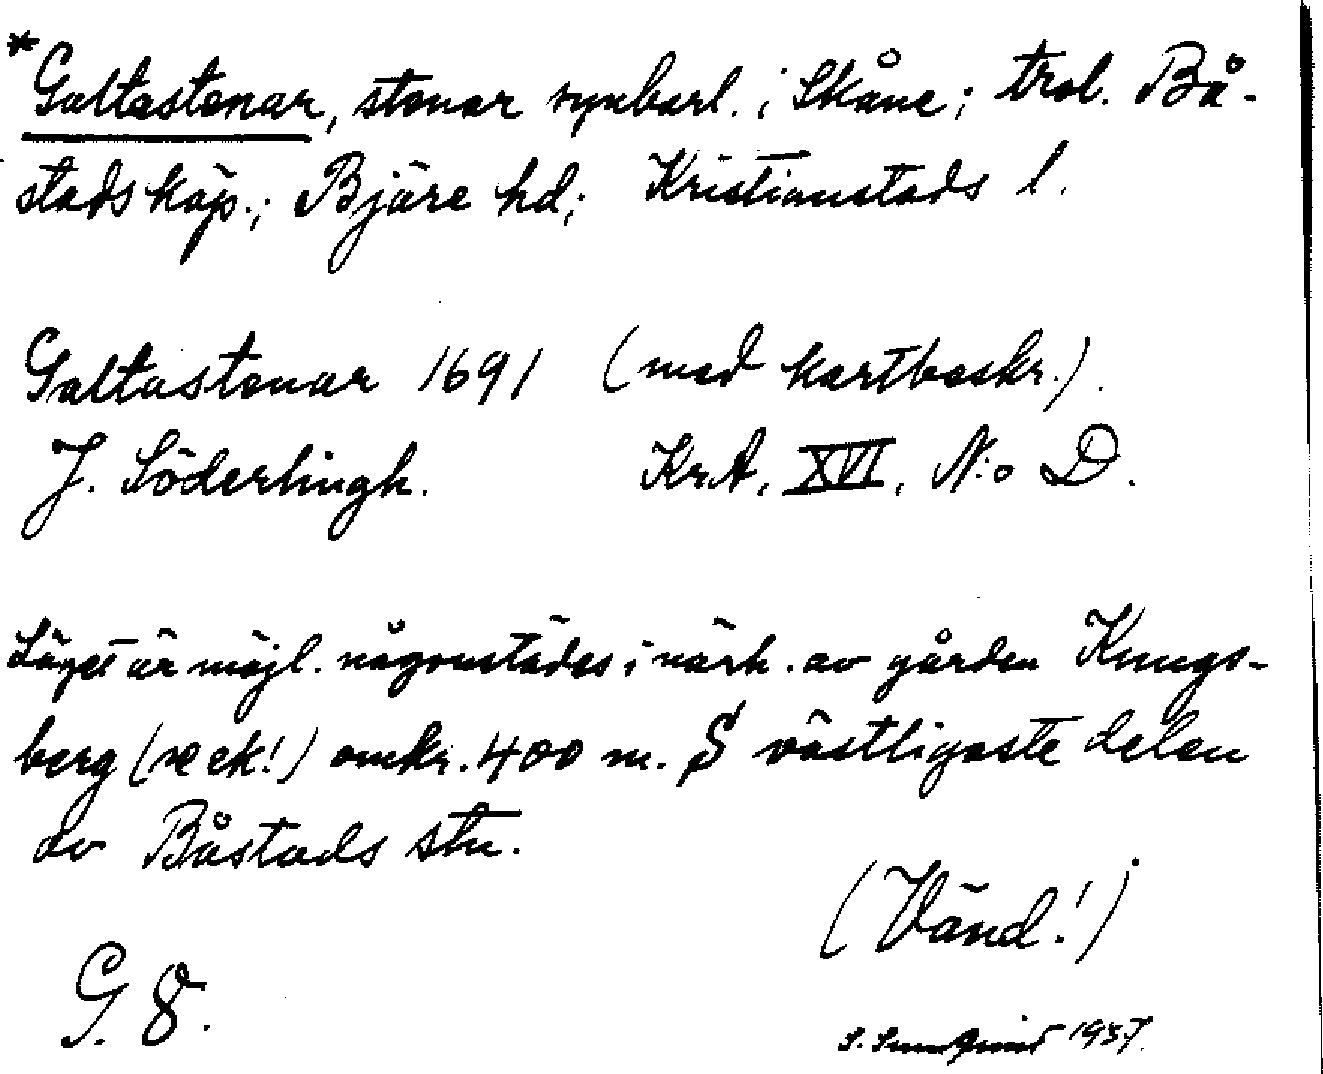 *Galtastenar, stenar synbarl. i Skåne; trol. Bå-
stads köp.; Bjäre hd; Kristianstads l.
Galtastenar 1691 (med kartbeskr.).
J. Söderlingh. KrA, XVI, N:o D.
Läget är möjl. någonstädes i närh. av gården Kungs-
berg (se ek!) omkr. 400 m. S västligaste delen
av Båstads stn.
(Vänd!)
G. 8.
S. 1937.